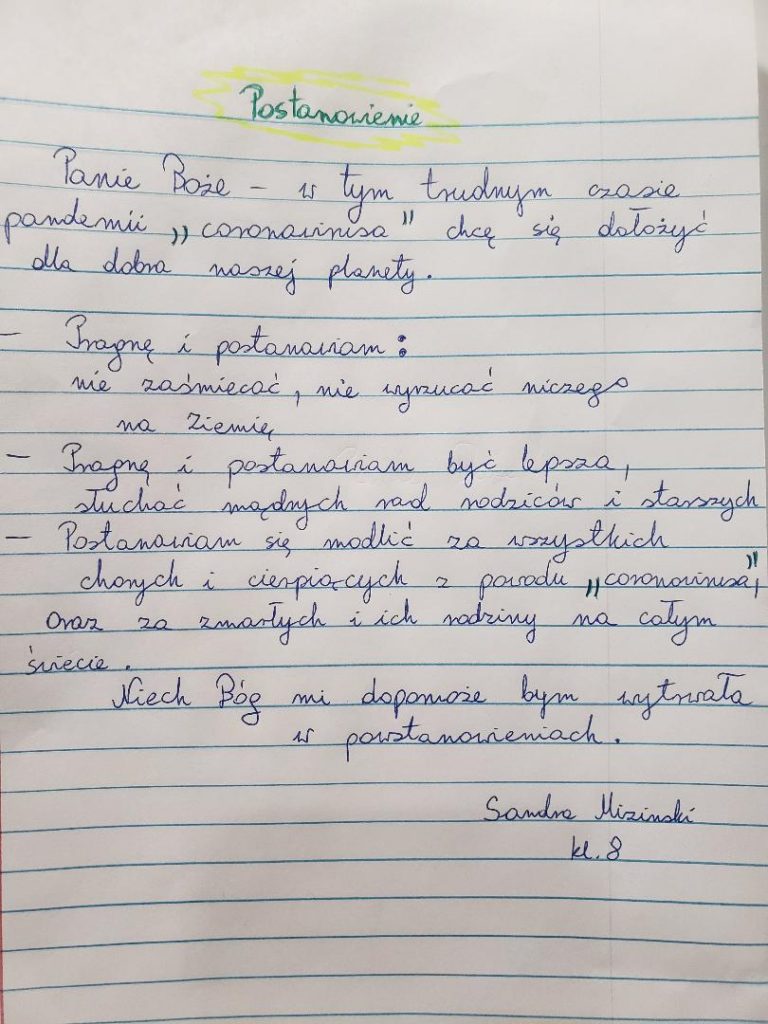 Postanowienie
Panie Boże - w tym trudnym czasie
pandemii „coronawirusa" chcę się dołożyć
dla dobra naszej planety.
- Pragnę i postanawiam:
nie zaśmiecać, nie wyrzucać niczego
na Ziemię
- Pragnę i postanawiam być lepsza,
słuchać mądrych rad rodziców i starszych
- Postanawiam się modlić za wszystkich
chorych i cierpiących z powodu „coronowirusa",
oraz za zmarłych i ich rodziny na całym
świecie.
Niech Bóg mi dopomoże bym wytrwała
w powstanowieniach.
Sandra Mizinski
kl. 8